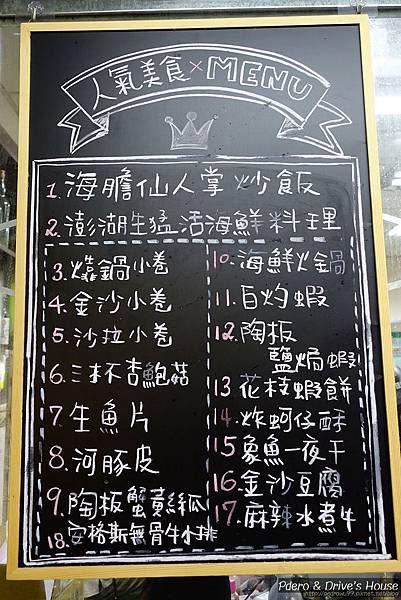 人氣美食×MENU
1.海膽仙人掌炒飯
2.澎湖生猛活海鮮料理
3.燒鍋小卷
4.金沙小卷
5.沙拉小卷
6.三杯杏鮑菇
7.生魚片
8.河豚皮
9.陶板蟹黃絲瓜
18.安格斯無骨牛小排
10.海鮮火鍋
11.白灼蝦
12.陶板
鹽焗蝦
13 花枝蝦餅
14.炸蚵仔酥
15 象魚一夜干
16 金沙豆腐
17.麻辣水煮牛
Pdero & Drive's House